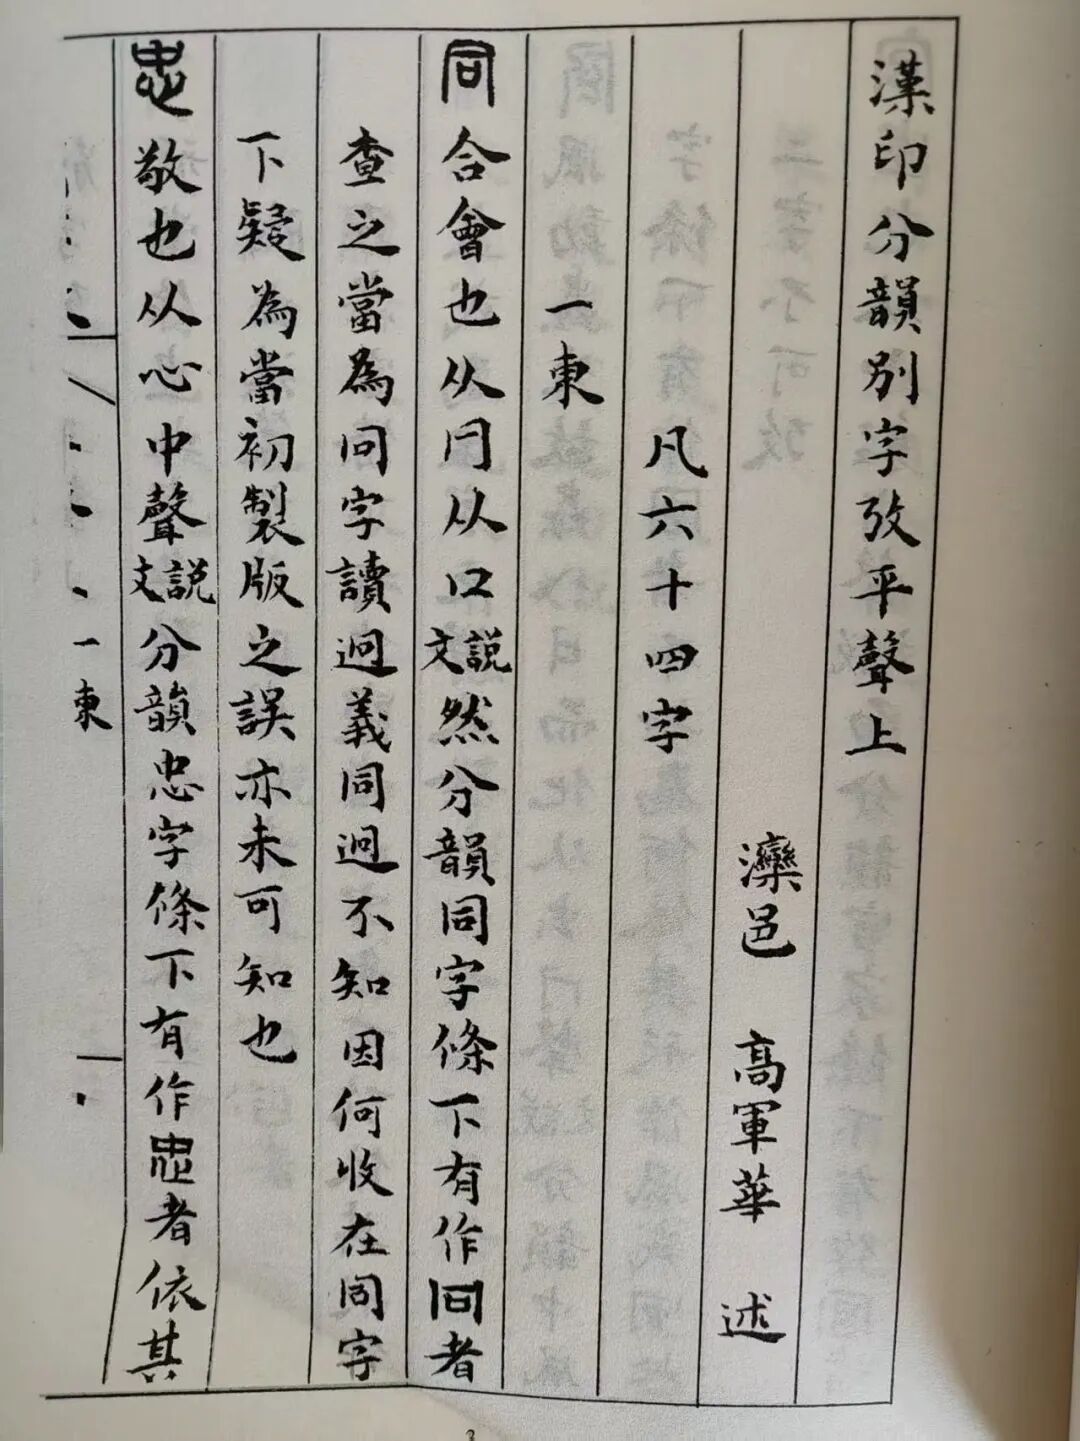 漢印分韻別字攷平聲上
灤邑 高軍華 述
凡六十四字
一東
同 合會也从冃从口說文然分韻同字條下有作冋者
查之當為冋字讀迥義同迥不知因何收在同字
下疑為當初製版之誤亦未可知也
忠 敬也从心中聲說文分韻忠字條下有作忠者依其
一東
3